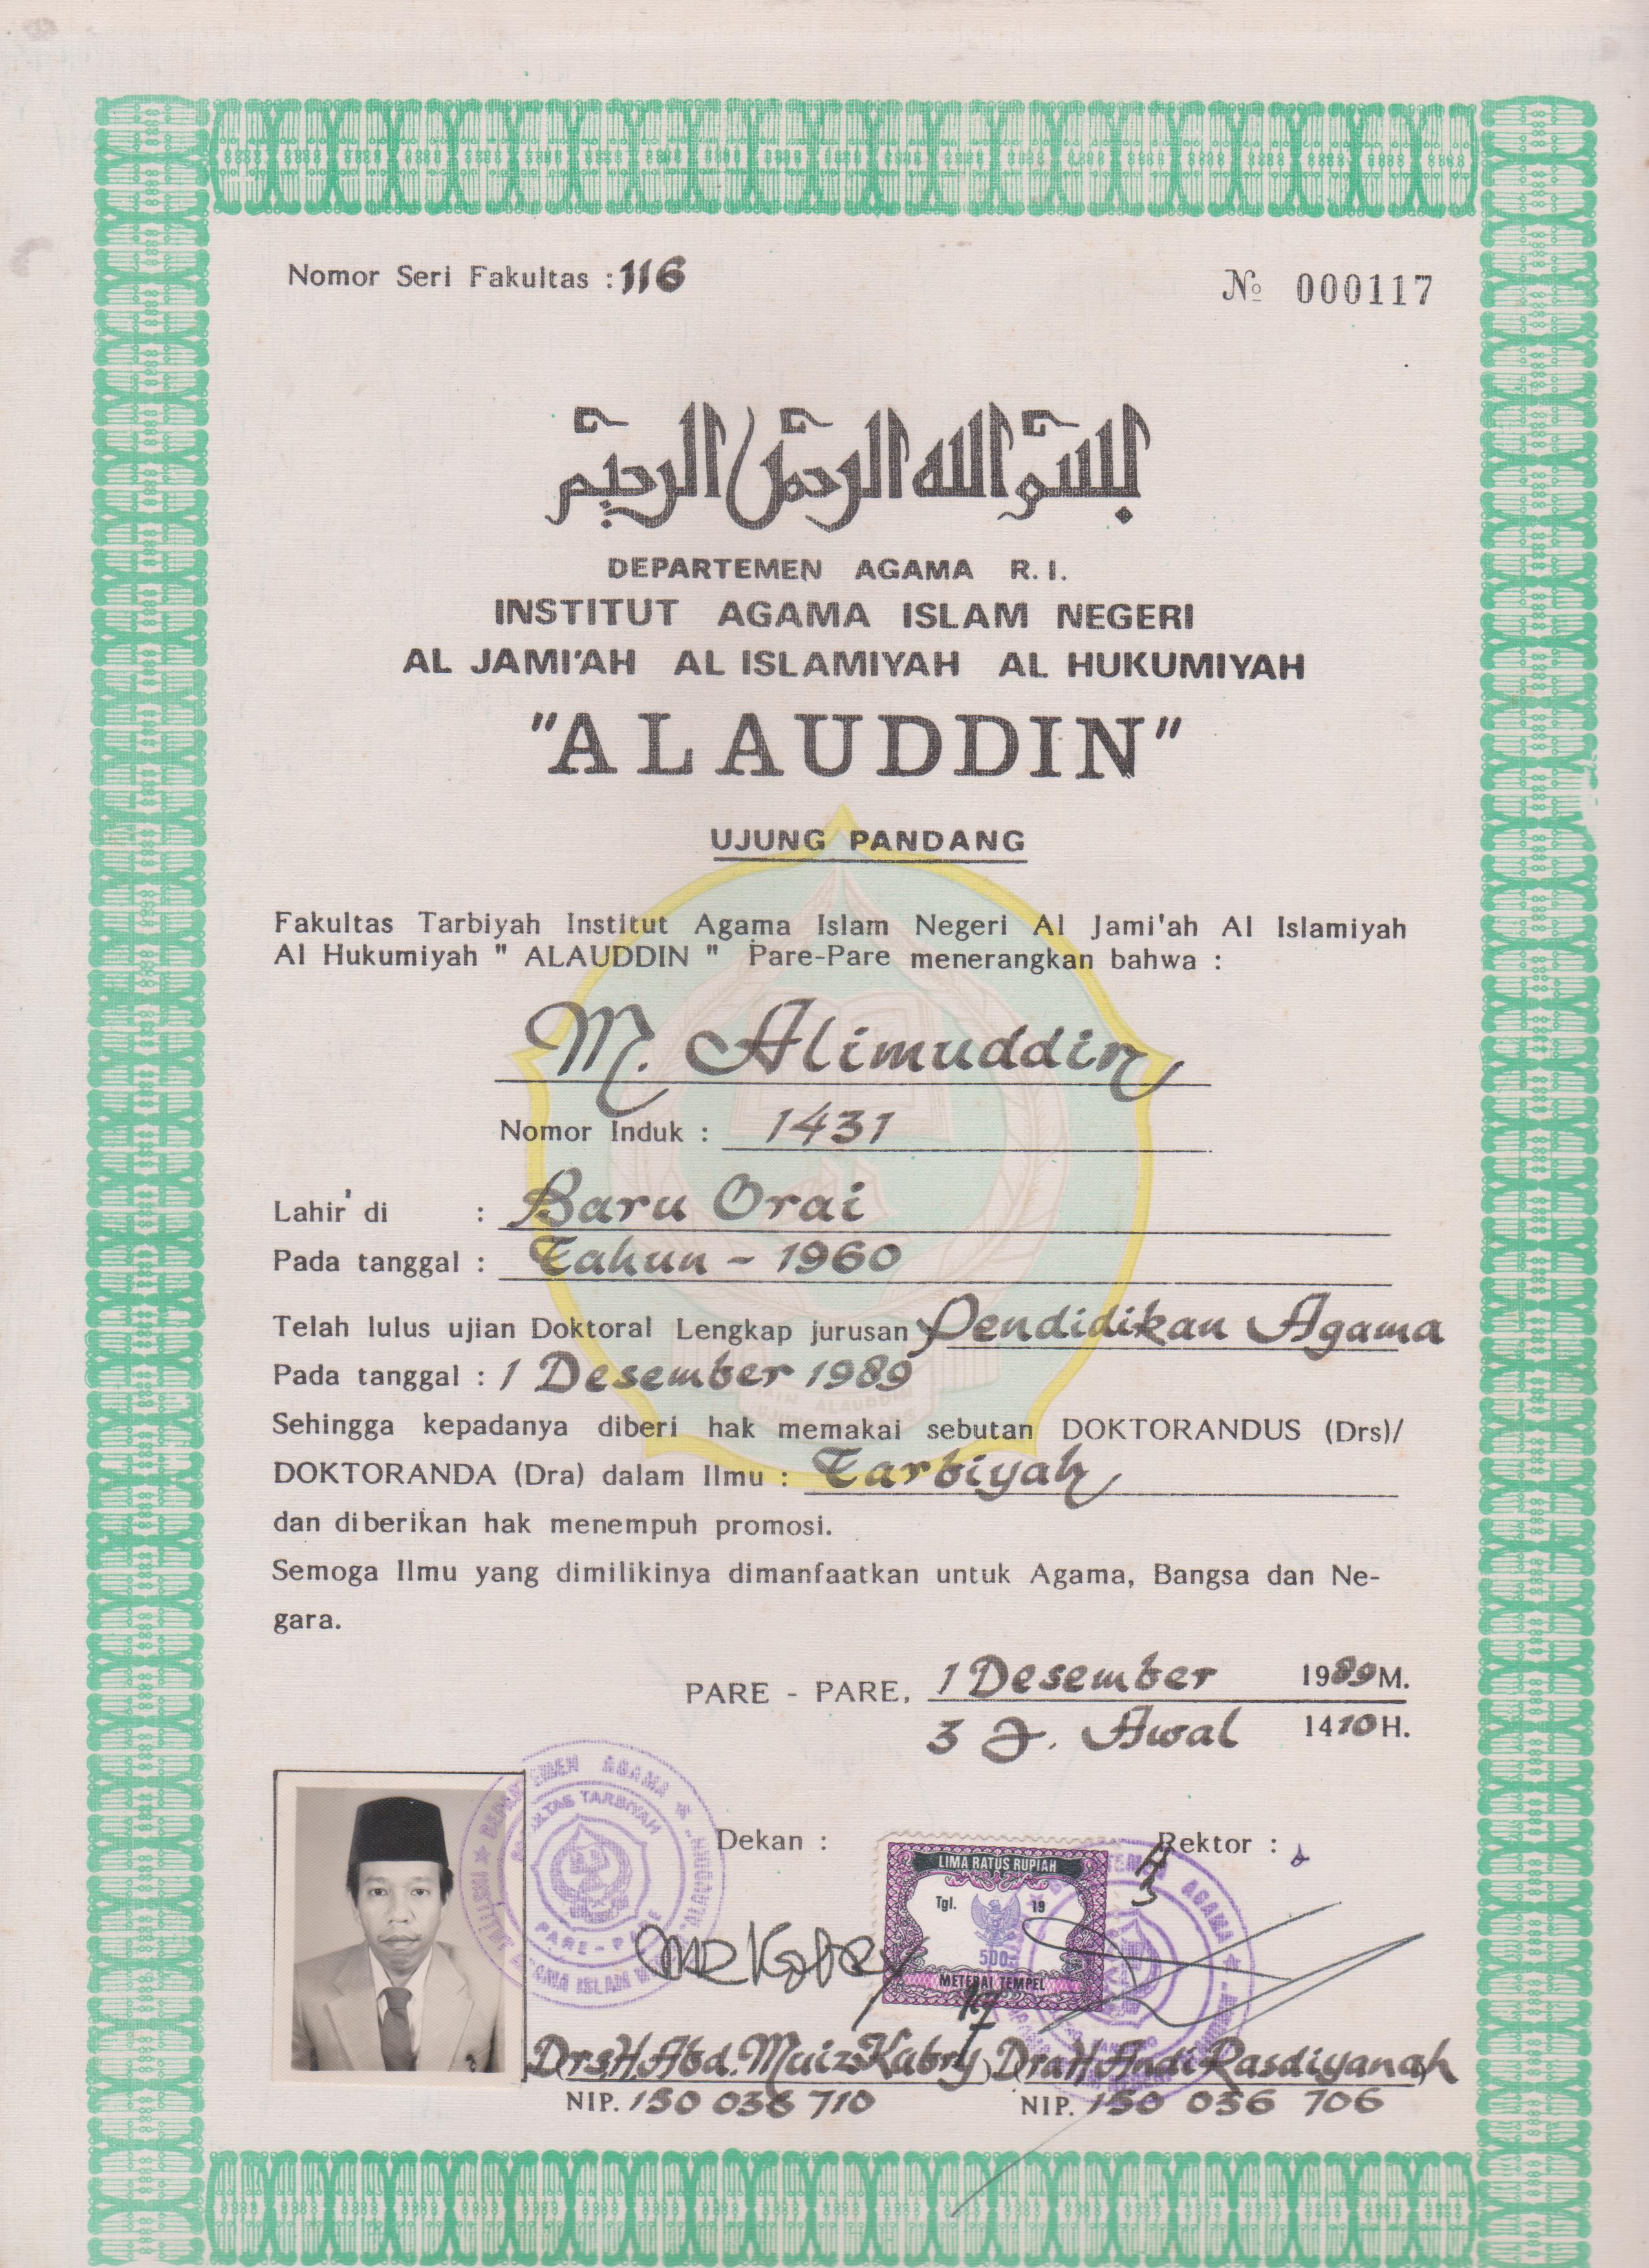 Nomor Seri Fakultas : 116
№ 000117
بسم الله الرحمن الرحيم
DEPARTEMEN AGAMA R. I.
INSTITUT AGAMA ISLAM NEGERI
AL JAMI'AH AL ISLAMIYAH AL HUKUMIYAH
"ALAUDDIN"
UJUNG PANDANG
Fakultas Tarbiyah Institut Agama Islam Negeri Al Jami'ah Al Islamiyah
Al Hukumiyah " ALAUDDIN " Pare-Pare menerangkan bahwa :
M. Alimuddin
Nomor Induk : 1431
Lahir di : Baru Orai
Pada tanggal : Tahun - 1960
Telah lulus ujian Doktoral Lengkap jurusan Pendidikan Agama
Pada tanggal : 1 Desember 1989
Sehingga kepadanya diberi hak memakai sebutan DOKTORANDUS (Drs)/
DOKTORANDA (Dra) dalam Ilmu : Tarbiyah
dan diberikan hak menempuh promosi.
Semoga Ilmu yang dimilikinya dimanfaatkan untuk Agama, Bangsa dan Ne-
gara.
PARE - PARE, 1 Desember 1989 M.
3 J. Awal 1410 H.
Dekan :
Rektor :
DEPARTEMEN AGAMA
FAKULTAS TARBIYAH
PARE - PARE
LIMA RATUS RUPIAH
Tgl. 19
500
METERAI TEMPEL
AGAMA
Drs H. Abd. Muiz Kabry
Dra H. Andi Rasdiyanah
NIP. 150 036 710
NIP. 150 036 706